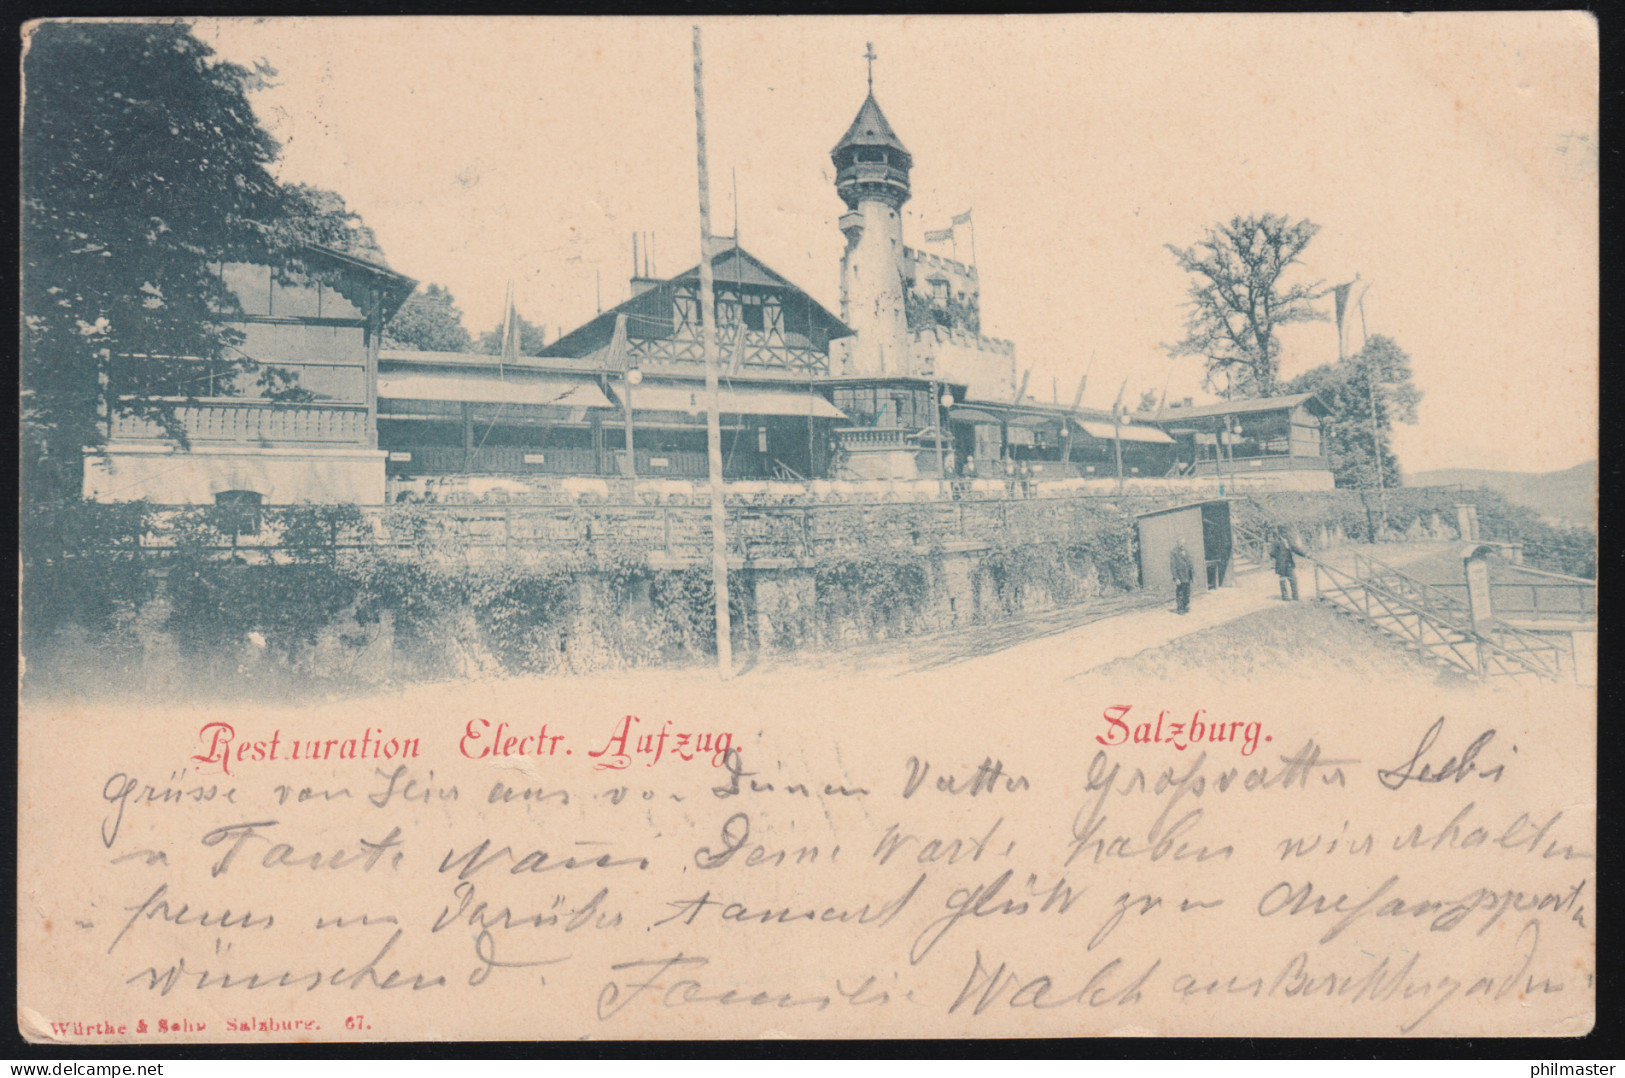 Restauration Electr. Aufzug.
Salzburg.
Grüsse von Hier aus von Deinen Vatter Großvatter Sebi
u Tante Nanni. Deine Karte haben wir erhalten
freuen uns Darüber. Glück zum
wünschend. Familie Walch aus Berchtesgaden
Würthe & Sohn Salzburg. 67.
delcampe.net
philmaster